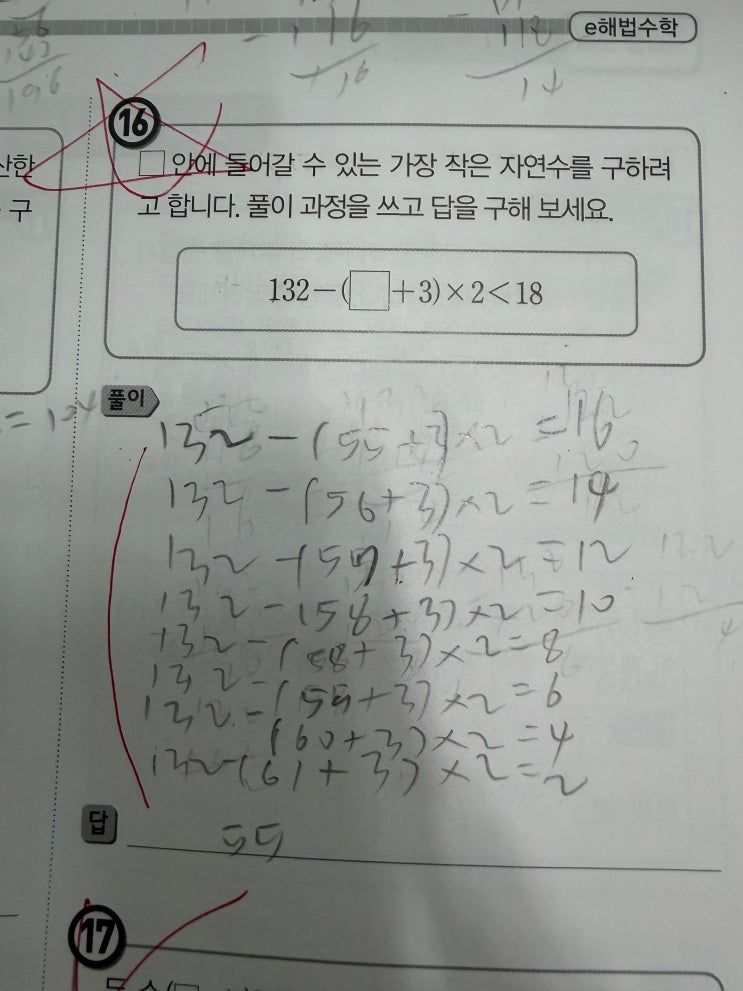 e해법수학
196
16
118
14
산한
구
16
□ 안에 들어갈 수 있는 가장 작은 자연수를 구하려
고 합니다. 풀이 과정을 쓰고 답을 구해 보세요.
132-(□+3)×2<18
= 104
풀이
132-(55+3)×2=16
132-(56+3)×2=14
132-(57+3)×2=12
132-(58+3)×2=10
132-(58+3)×2=8
132-
132-(59+3)×2=6
(60+3)×2=4
132-(61+3)×2=2
답
55
17